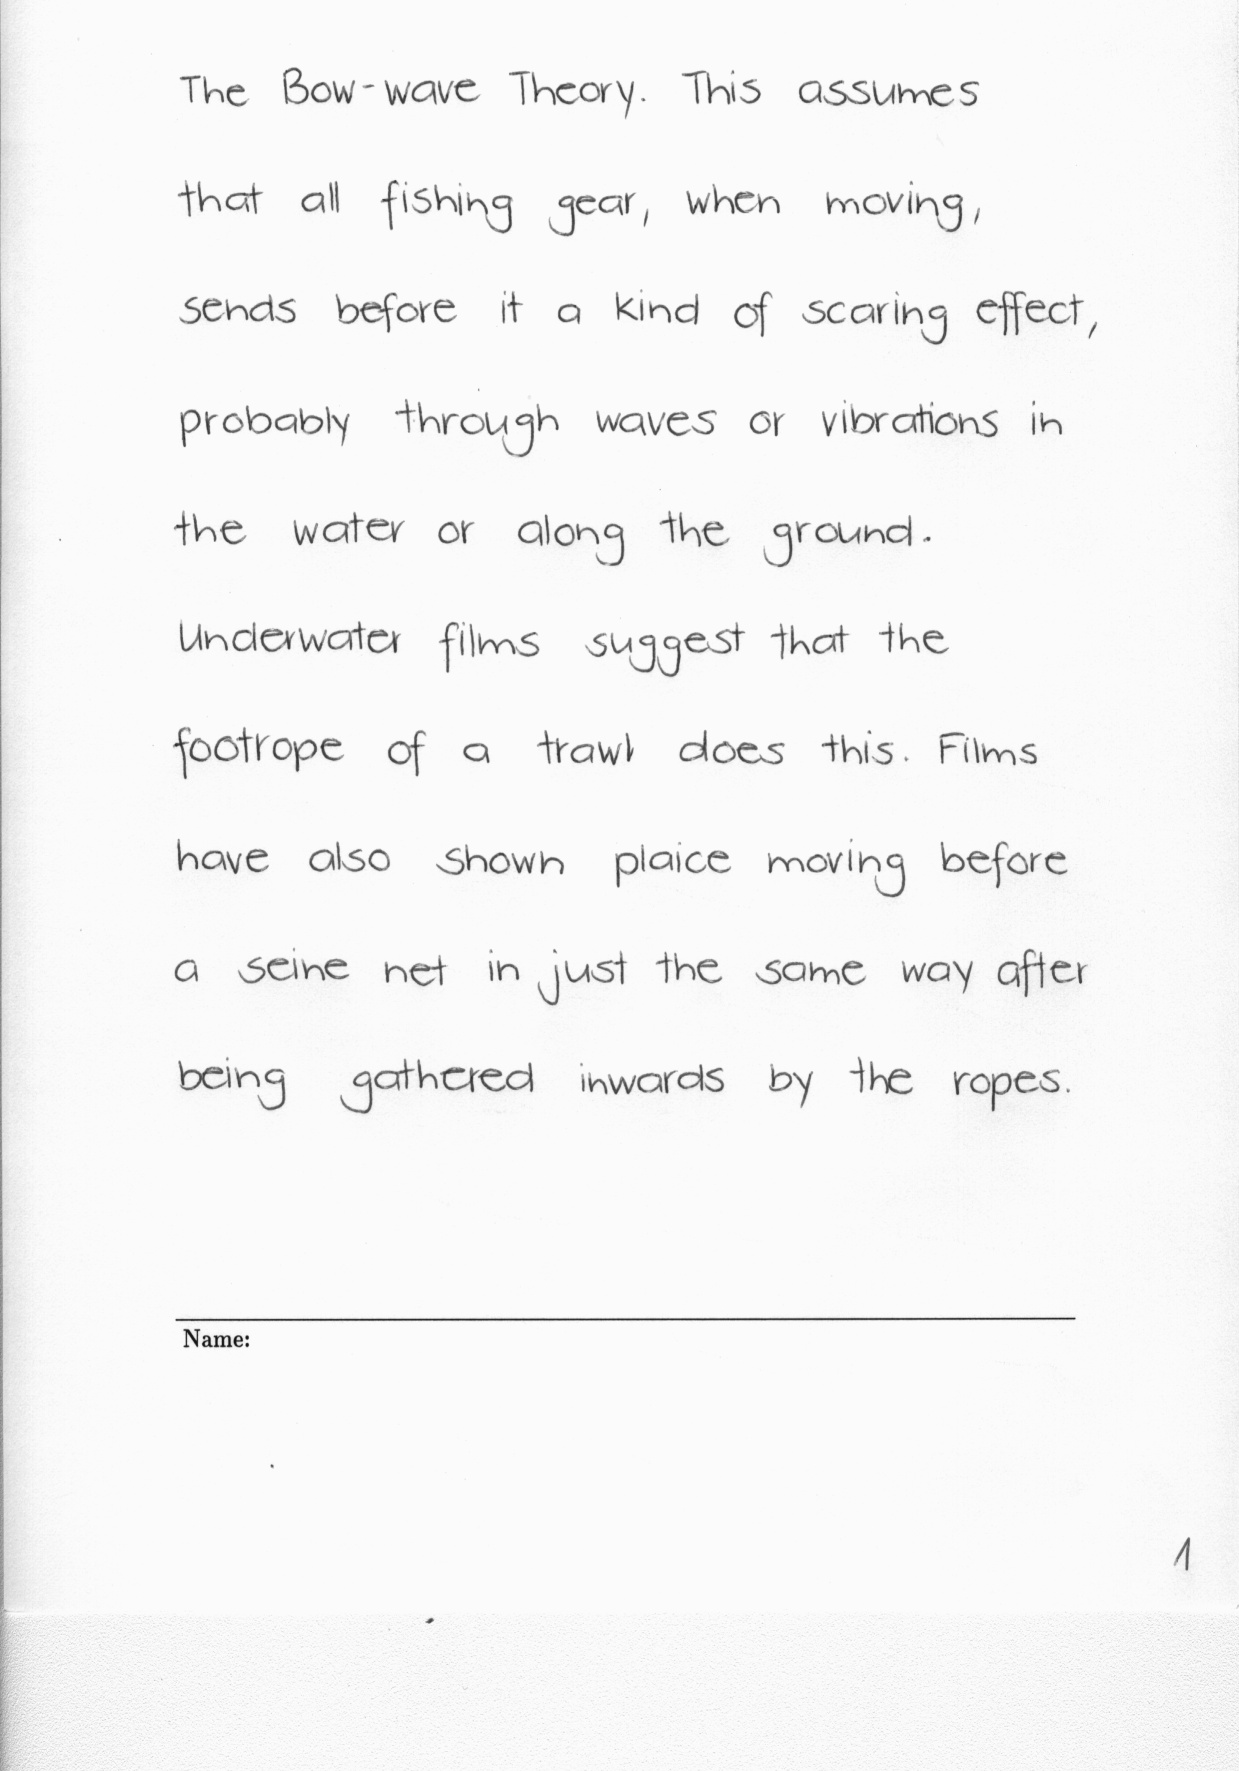 The Bow-wave Theory. This assumes
that all fishing gear, when moving,
sends before it a kind of scaring effect,
probably through waves or vibrations in
the water or along the ground.
Underwater films suggest that the
footrope of a trawl does this. Films
have also shown plaice moving before
a seine net in just the same way after
being gathered inwards by the ropes.
Name:
1